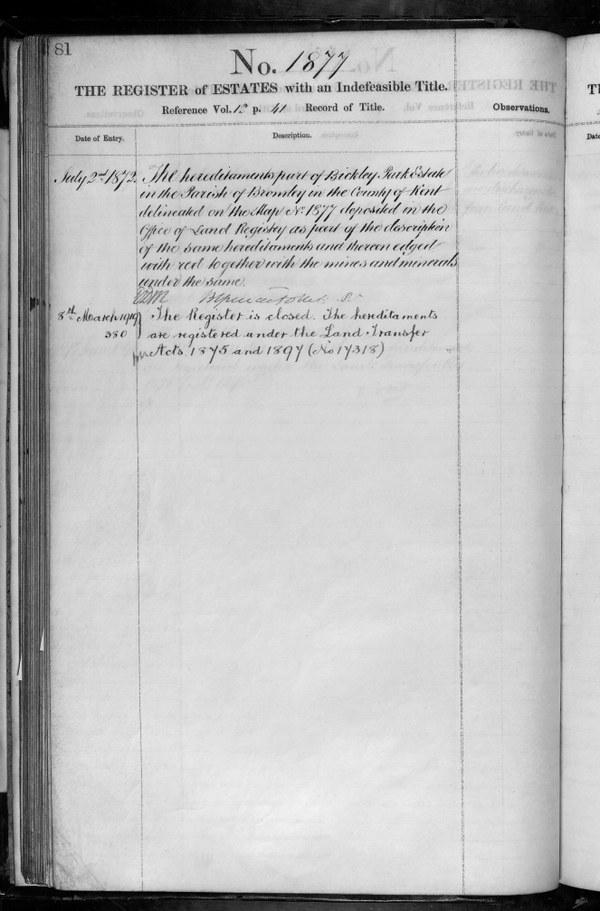 81
No. 1877
THE REGISTER of ESTATES with an Indefeasible Title.
Reference Vol. 12 p. 41 Record of Title.
Observations.
Date of Entry.
Description.
July 2nd 1872.
The hereditaments part of Bickley Park Estate
in the Parish of Bromley in the County of Kent
delineated on the Map No. 1877 deposited in the
Office of Land Registry as part of the description
of the same hereditaments and thereon edged
with red together with the mines and minerals
under the same.
8th March 1919
380
The Register is closed. The hereditaments
are registered under the Land Transfer
Acts 1875 and 1897 (No 17318)